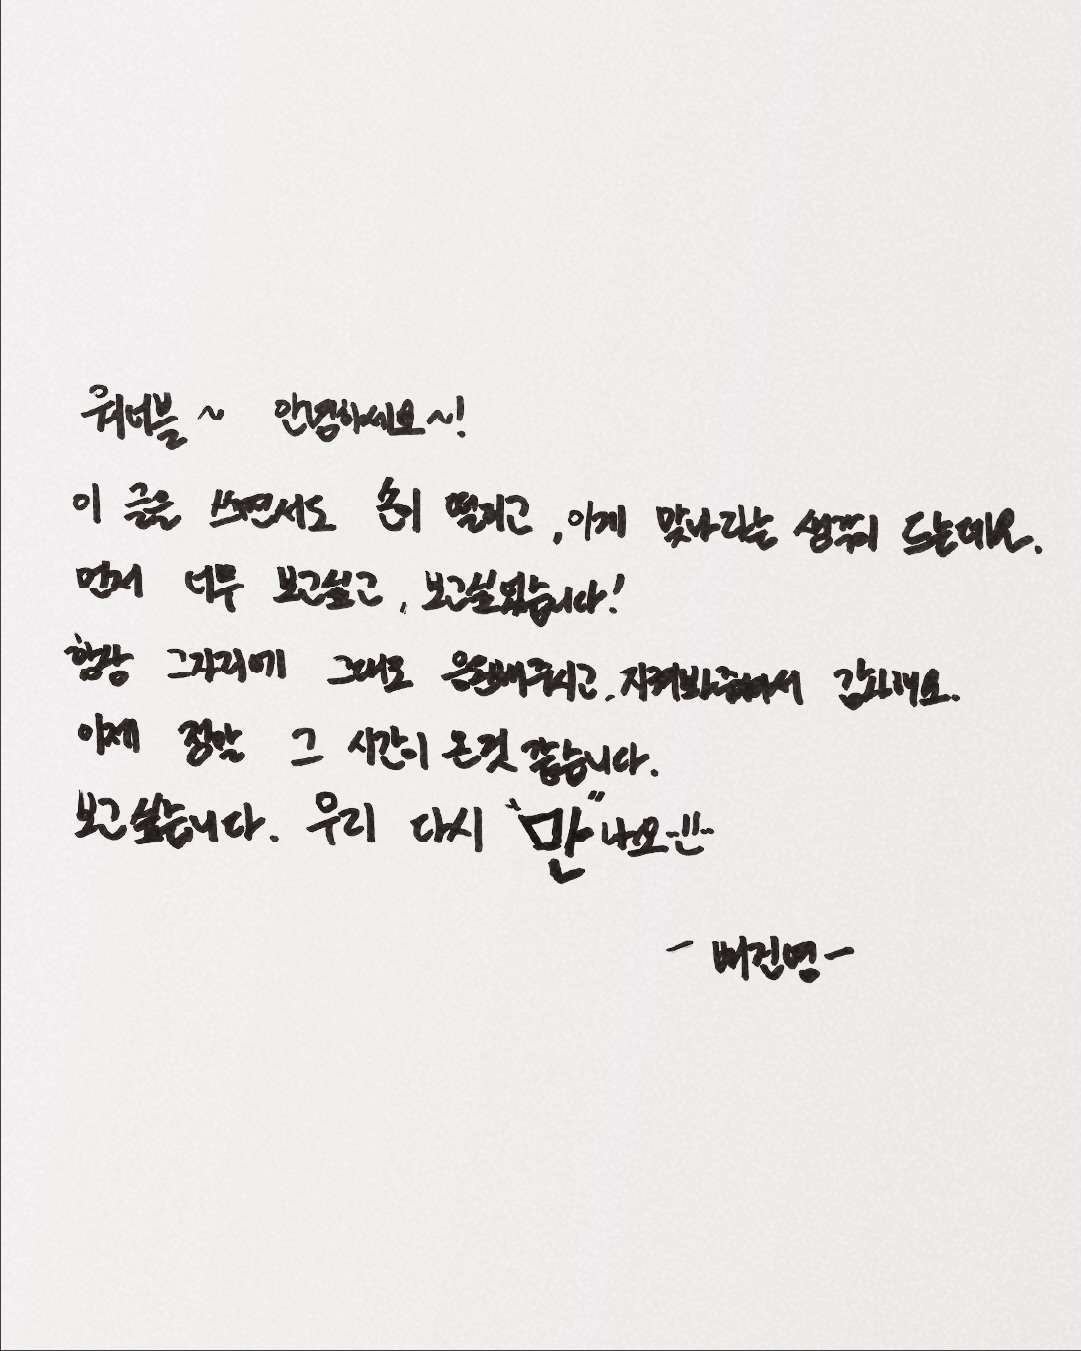 워너블~ 안녕하세요~!
이 글을 쓰면서도 손이 떨리고, 이게 맞나 라는 생각이 드는데요.
먼저 너무 보고싶고, 보고싶었습니다!
항상 그자리에 그대로 응원해주시고, 지켜봐주셔서 감사해요.
이제 정말 그 시간이 온것 같습니다.
보고싶습니다. 우리 다시 "만"나요..!!..
- 배진영 -